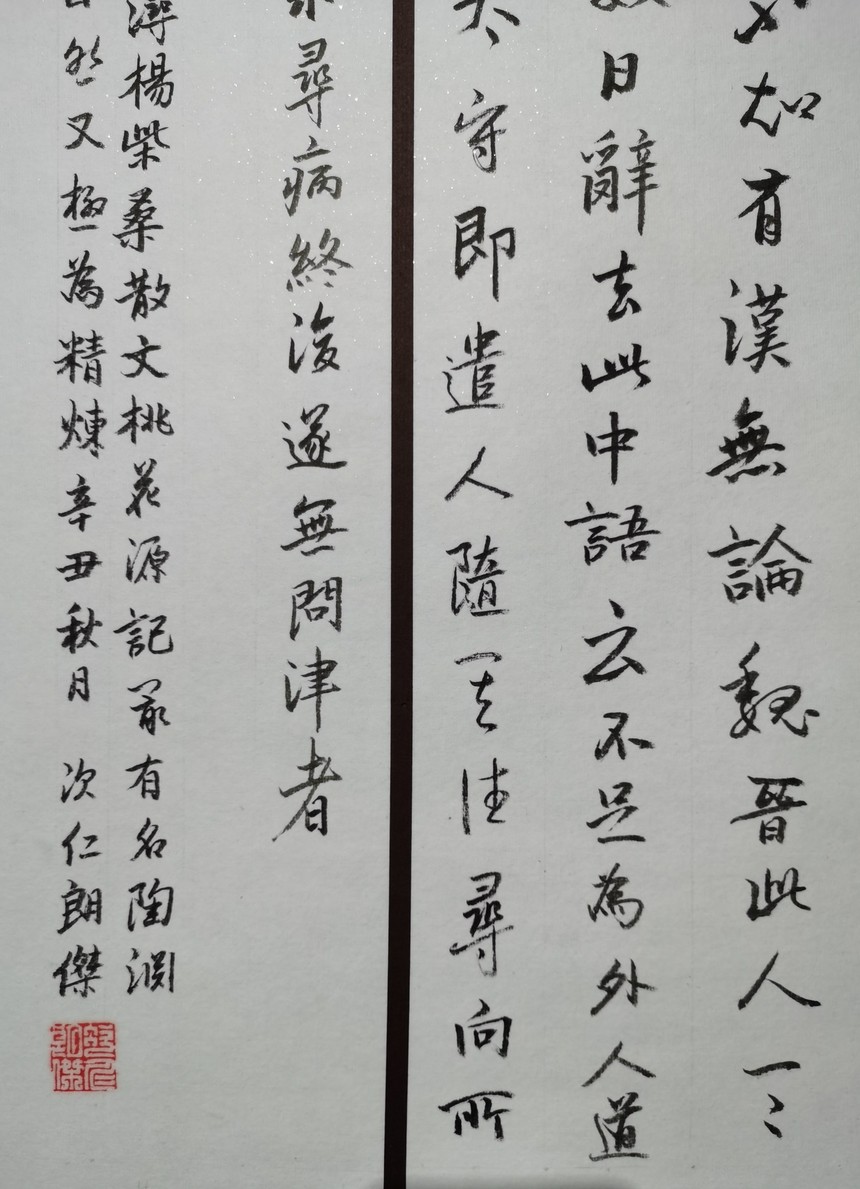 知有漢無論魏晉此人一
數日辭去此中語云不足為外人道
太守即遣人隨其往尋向所
尋病終後遂無問津者
潯楊柴桑散文桃花源記最有名陶淵
然又極為精煉辛丑秋月 次仁朗傑